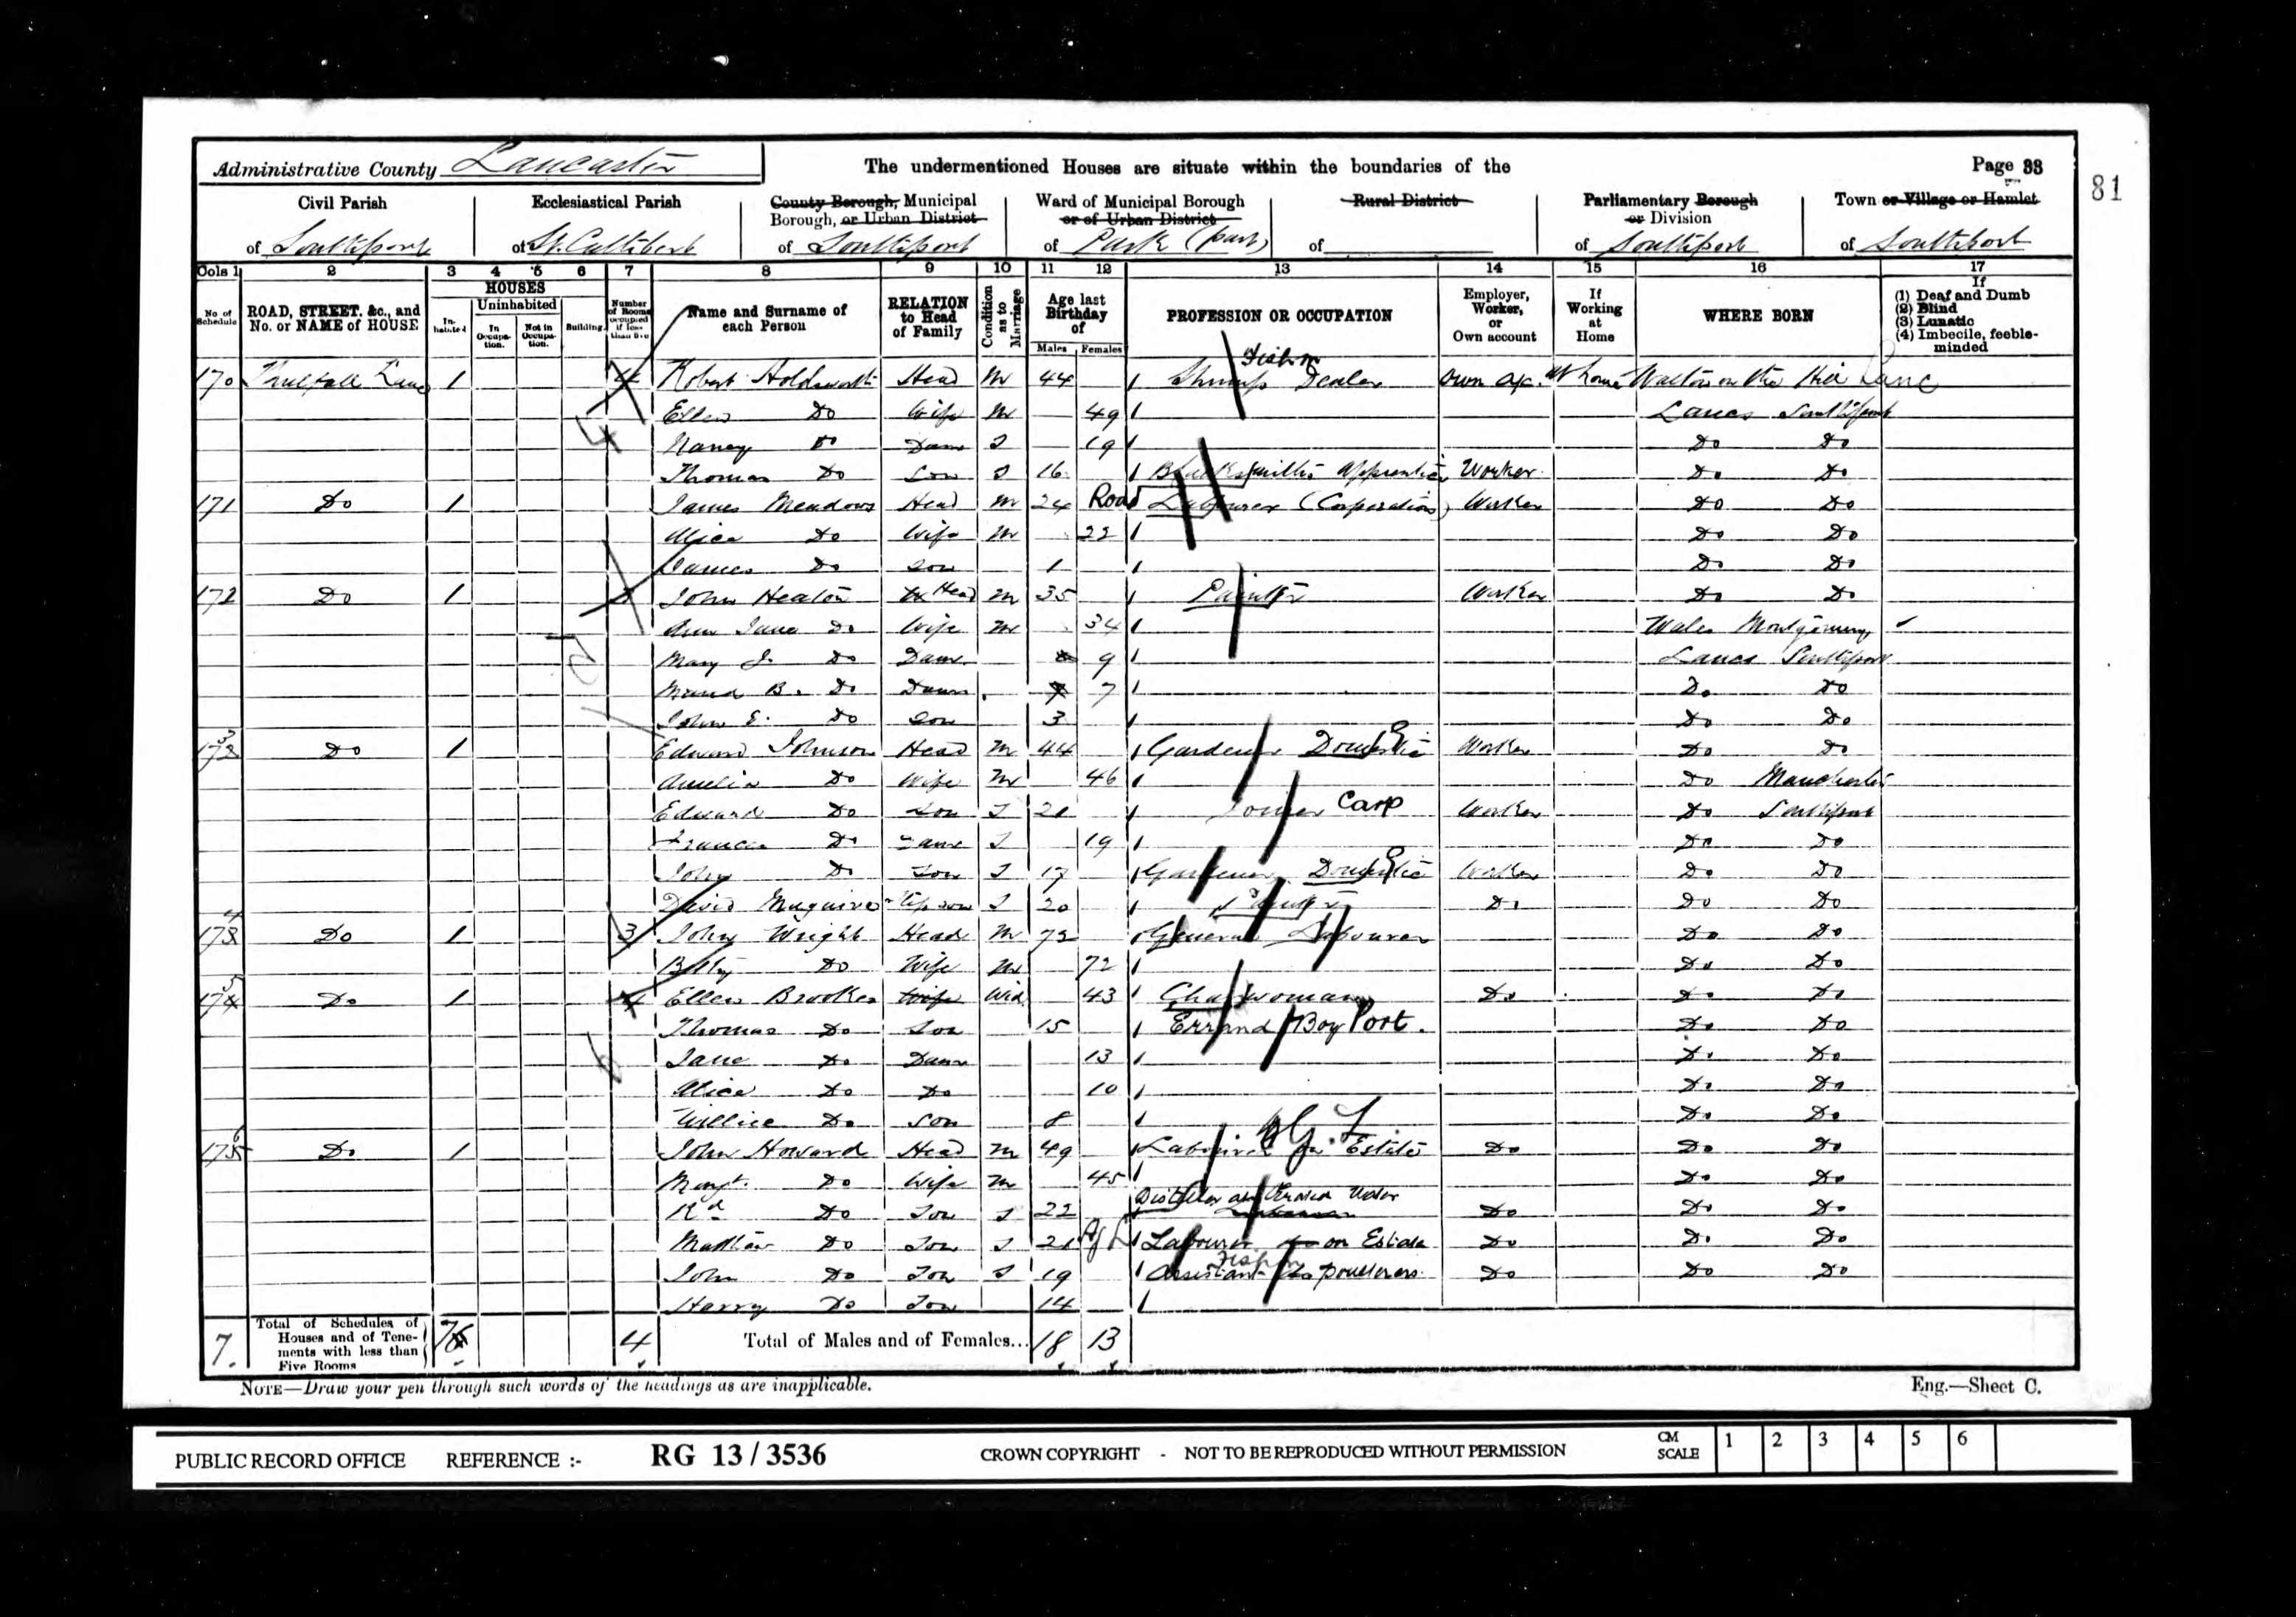 Administrative County Lancaster
The undermentioned Houses are situate within the boundaries of the
Page 33
81
Civil Parish
of Southport
Ecclesiastical Parish
of St. Cuthbert
County Borough, Municipal
Borough, or Urban District
of Southport
Ward of Municipal Borough
or of Urban District
of Park (part)
Rural District
of
Parliamentary Borough
or Division
of Southport
Town or Village or Hamlet
of Southport
Cols 1 2 3 4 5 6 7 8 9 10 11 12 13 14 15 16 17
No of Schedule
ROAD, STREET, &c., and No. or NAME of HOUSE
HOUSES
Inhabited
Uninhabited
In Occupation.
Not in Occupation.
Building.
Number of Rooms occupied if less than five
Name and Surname of each Person
RELATION to Head of Family
Condition as to Marriage
Age last Birthday of
Males Females
PROFESSION OR OCCUPATION
Employer, Worker, or Own account
If Working at Home
WHERE BORN
If
(1) Deaf and Dumb
(2) Blind
(3) Lunatic
(4) Imbecile, feeble-minded
170 Lane 1 4 Robert Holdsworth Head M 44 Shrimp Dealer Fishm own ac. At home Walton on the Hill Lanc
Ellen Do Wife M 49 Lancs Southport
4
Nancy Do Daur S 19 Do Do
Thomas Do Son S 16 Blacksmith's apprentice Worker Do Do
171 Do 1 James Meadows Head M 24 Road Labourer (Corporation) Worker Do Do
Alice Do Wife M 22 Do Do
James Do Son 1 Do Do
172 Do 1 John Heaton Head M 35 Painter Worker Do Do
Ann Jane Do Wife M 34 Wales Montgomery
5
Mary J. Do Daur 9 Lancs Southport
Maud B. Do Daur 7 Do Do
John E. Do Son 3 Do Do
173 Do 1 Edward Johnson Head M 44 Gardener Domestic Worker Do Do
Amelia Do Wife M 46 Do Manchester
Edward Do Son S 21 Joiner Carp Worker Do Southport
Do Daur S 19 Do Do
John Do Son S 17 Gardener Domestic Worker Do Do
David Maguire Step son S 20 Painter Do Do Do
174 Do 1 3 John Wright Head M 72 General Labourer Do Do
Betty Do Wife M 72 Do Do
175 Do 1 4 Ellen Brookes Wife Wid 43 Charwoman Do Do Do
Thomas Do Son 15 Errand Boy Port. Do Do
Jane Do Daur 13 Do Do
Alice Do Do 10 Do Do
Willie Do Son 8 Do Do
176 Do 1 John Howard Head M 49 Labourer on Estate Do Do Do
Margt. Do Wife M 45 Do Do
Rd Do Son S 22 Water Do Do Do
Matthew Do Son S 21 Labourer on Estate Do Do Do
John Do Son S 19 Assistant poulterers Fishm Do Do Do
Harry Do Son 14
7. Total of Schedules of Houses and of Tenements with less than Five Rooms 7 4 Total of Males and of Females... 18 13
NOTE—Draw your pen through such words of the headings as are inapplicable.
Eng.—Sheet C.
PUBLIC RECORD OFFICE REFERENCE :- RG 13 / 3536 CROWN COPYRIGHT - NOT TO BE REPRODUCED WITHOUT PERMISSION
CM SCALE 1 2 3 4 5 6